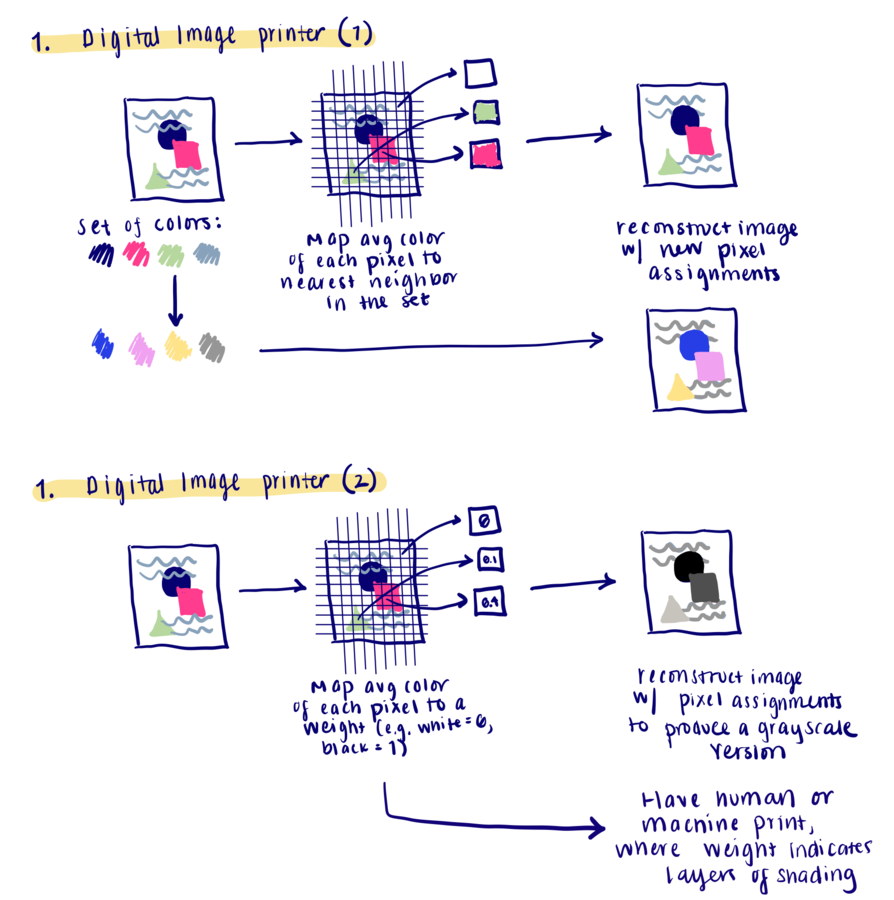 1. Digital Image printer (1)
set of colors:
Map avg color
of each pixel to
nearest neighbor
in the set
reconstruct image
w/ new pixel
assignments
1. Digital Image printer (2)
0
0.1
0.4
Map avg color
of each pixel to a
weight (e.g. white=0,
black=1)
reconstruct image
w/ pixel assignments
to produce a grayscale
version
Have human or
machine print,
where weight indicates
layers of shading